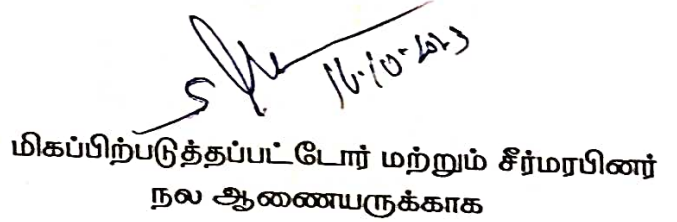 16.10.2023
மிகப்பிற்படுத்தப்பட்டோர் மற்றும் சீர்மரபினர்
நல ஆணையருக்காக